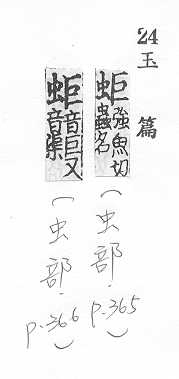 24
玉篇
蚷強魚切蟲名
(虫部.p.365)
蚷音巨又音渠
(虫部.p.366)